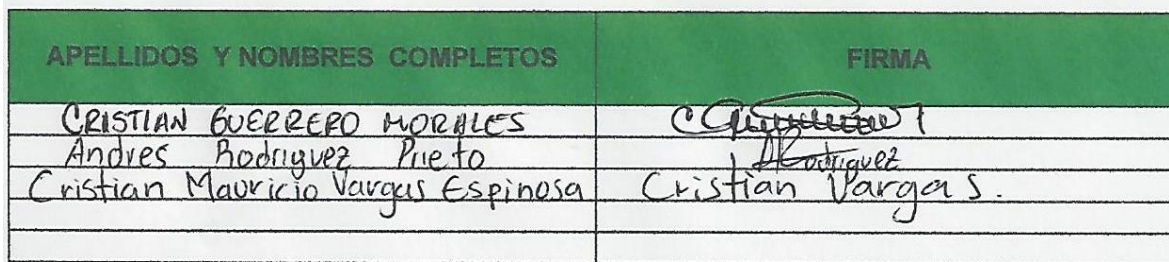 APELLIDOS Y NOMBRES COMPLETOS FIRMA
CRISTIAN GUERRERO MORALES
Andres Rodriguez Prieto ARodriguez
Cristian Mauricio Vargas Espinosa Cristian Vargas.